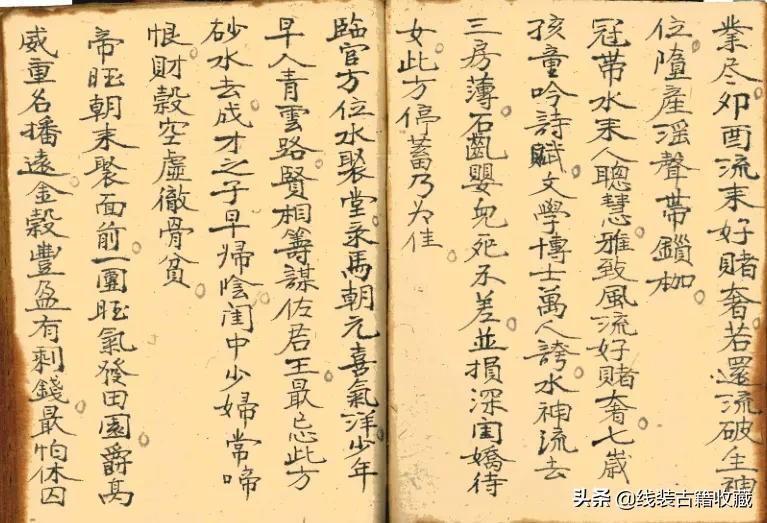 業尽卯酉流来好賭奢若還流破生神
位隨産滛聲帶鎖枷
冠帶水来人聰慧雅致風流好賭奢七歲
孩童吟詩賦文學博士萬人誇水神流去
三房薄石齔嬰兒死不差並損深閨嬌待
女此方停蓄乃為佳
臨官方位水聚堂禄馬朝元喜氣洋少年
早入青雲路賢相籌謀佐君王最忌此方
砂水去成才之子早歸陰閨中少婦常啼
恨財穀空虛徹骨貧
帝旺朝来聚面前一團旺氣發田園爵高
威重名播遠金穀豐盈有剩錢最怕休囚
头条 @线装古籍收藏